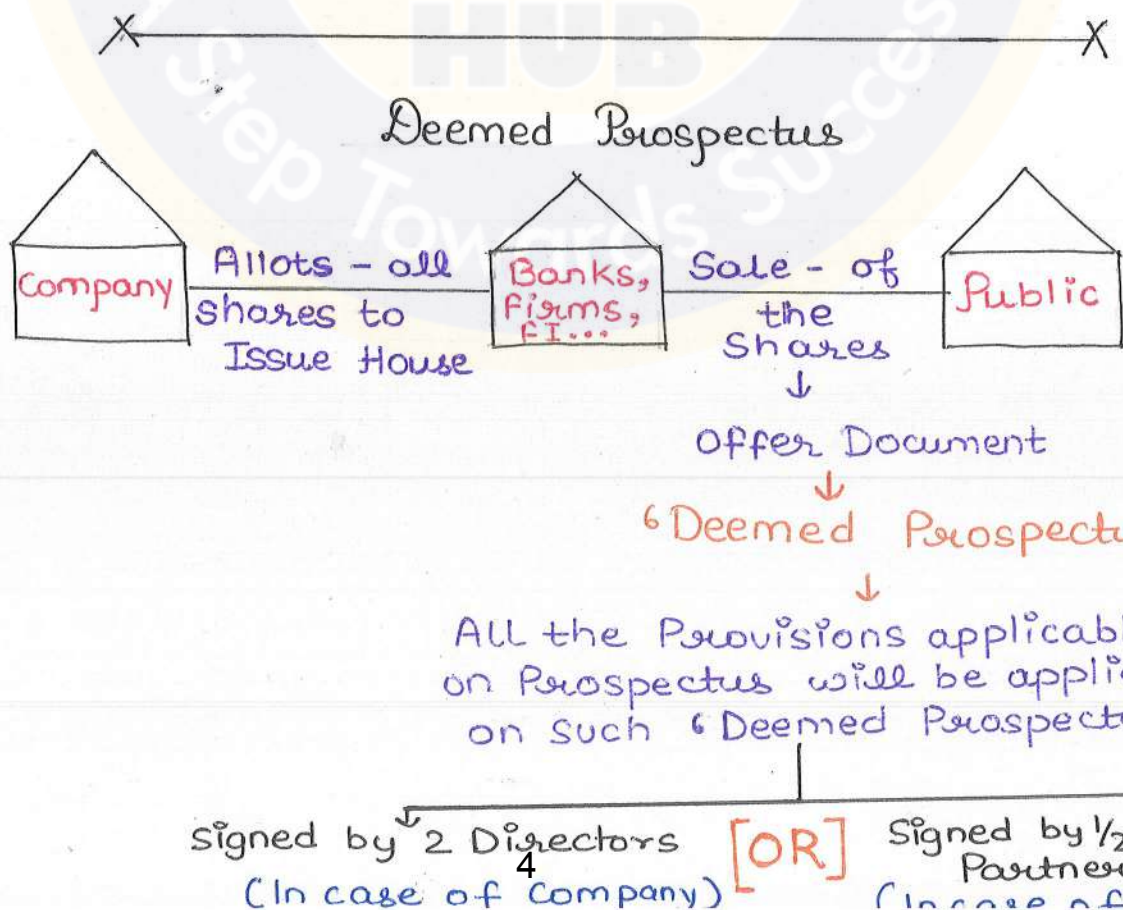 HUB
A Step Towards Success
Deemed Prospectus
Company
Allots - all
shares to
Issue House
Banks,
Firms,
FI...
Sale - of
the
Shares
Public
↓
Offer Document
↓
‘Deemed Prospectu
↓
All the Provisions applicabl
on Prospectus will be applic
on such ‘Deemed Prospectu
Signed by 2 Directors
(In case of Company)
[OR]
Signed by 1/2
Partner
(In case of
4